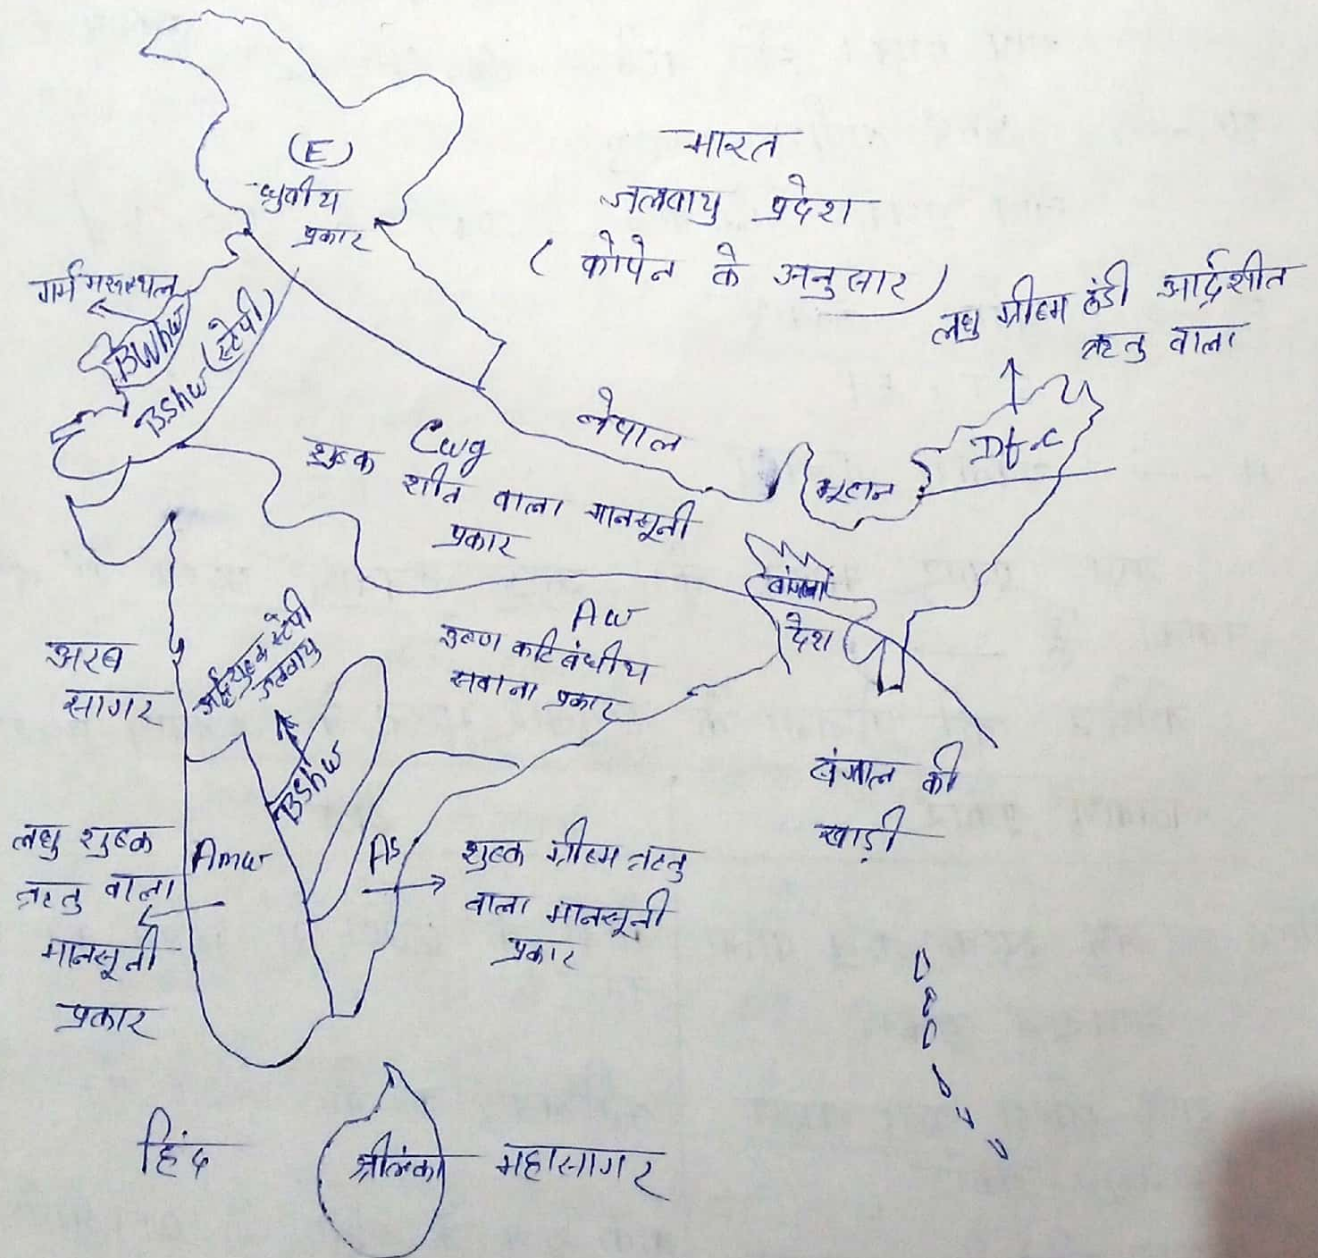 भारत
जलवायु प्रदेश
( कोपेन के अनुसार )
(E)
ध्रुवीय
प्रकार
गर्म मरूस्थल
BWhw
BShw (स्टेपी)
लघु ग्रीष्म ठंडी आर्द्रशीत
ऋतु वाला
Dfc
नेपाल
भूटान
Cwg
शुष्क
शीत वाला मानसूनी
प्रकार
बांग्ला
देश
Aw
उष्ण कटिबंधीय
सवाना प्रकार
अरब
सागर
अर्द्धशुष्क स्टेपी
जलवायु
BShw
बंगाल की
खाड़ी
लघु शुष्क
ऋतु वाला
मानसूनी
प्रकार
Amw
As
शुष्क ग्रीष्म ऋतु
वाला मानसूनी
प्रकार
हिंद
श्रीलंका
महासागर